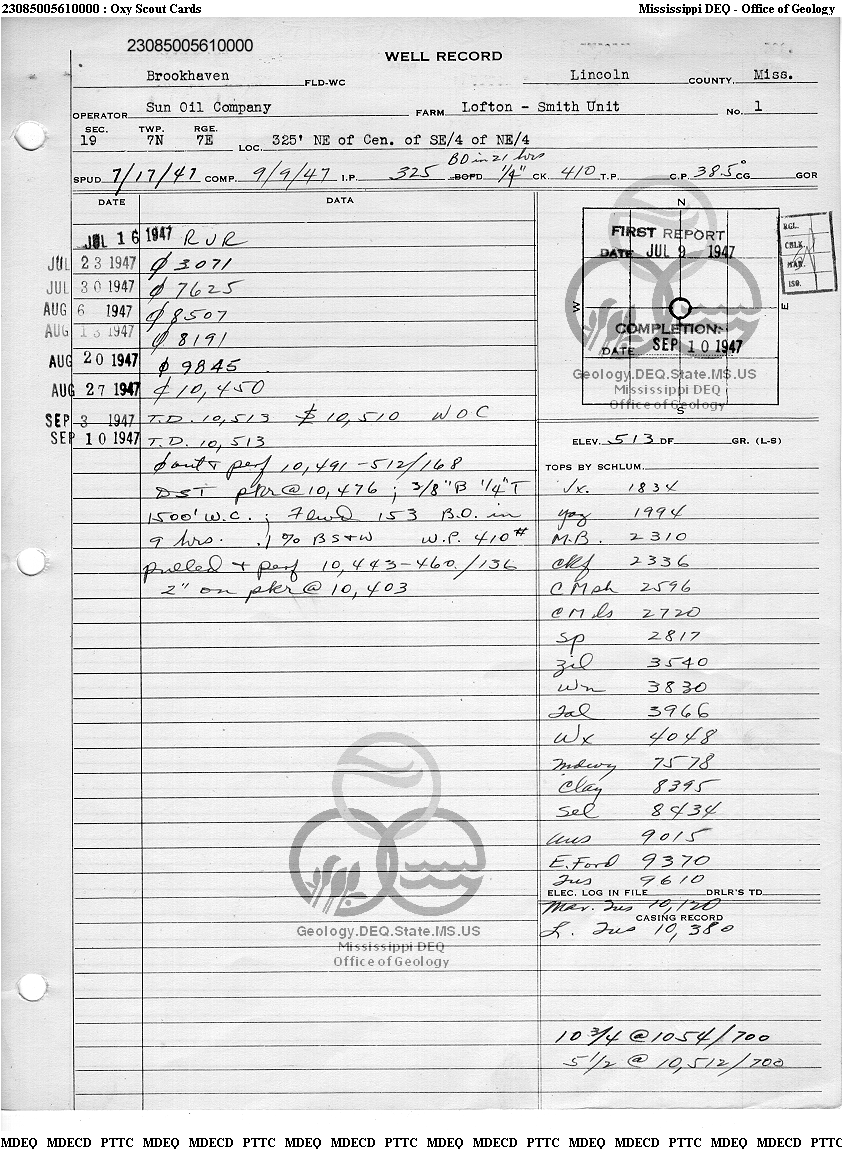 23085005610000 : Oxy Scout Cards Mississippi DEQ - Office of Geology
23085005610000
WELL RECORD
Brookhaven FLD-WC Lincoln COUNTY, Miss.
OPERATOR Sun Oil Company FARM Lofton - Smith Unit No. 1
SEC. TWP. RGE.
19 7N 7E LOC. 325' NE of Cen. of SE/4 of NE/4
BO in 21 hrs
SPUD 7/17/47 COMP. 9/9/47 I.P. 325 BOPD 1/4" CK. 410 T.P. C.P. 38.5° CG GOR
DATE DATA
JUL 16 1947 RUR
JUL 23 1947 ⌀ 3071
JUL 30 1947 ⌀ 7625
AUG 6 1947 ⌀ 8507
AUG 13 1947 ⌀ 8191
AUG 20 1947 ⌀ 9845
AUG 27 1947 ⌀ 10,450
SEP 3 1947 T.D. 10,513 $ 10,510 WOC
SEP 10 1947 T.D. 10,513
perf 10,491-512/168
DST pkr @ 10,476 ; 3/8" B 1/4" T
1500' W.C. ; Flwd 153 B.O. in
9 hrs. .1% BS+W W.P. 410#
pulled + perf 10,443-460/136
2" on pkr @ 10,403
N
FIRST REPORT
DATE JUL 9 1947
W E
COMPLETION:
DATE SEP 10 1947
S
RGL.
CHLK.
MAR.
ISO.
Geology.DEQ.State.MS.US
Mississippi DEQ
Office of Geology
ELEV. 513 DF GR. (L-S)
TOPS BY SCHLUM.
Jx. 1834
yaz 1994
M.B. 2310
ckf 2336
C M sh 2596
C M ls 2720
Sp 2817
zil 3540
Wn 3830
Tal 3966
Wx 4048
mdwy 7578
Clay 8395
Sel 8434
Aus 9015
E. Ford 9370
Tus 9610
ELEC. LOG IN FILE DRLR'S TD
Mar. Tus 10,120
CASING RECORD
L. Tus 10,380
10 3/4 @ 1054/700
5 1/2 @ 10,512/700
Geology.DEQ.State.MS.US
Mississippi DEQ
Office of Geology
MDEQ MDECD PTTC MDEQ MDECD PTTC MDEQ MDECD PTTC MDEQ MDECD PTTC MDEQ MDECD PTTC MDEQ MDECD PTTC